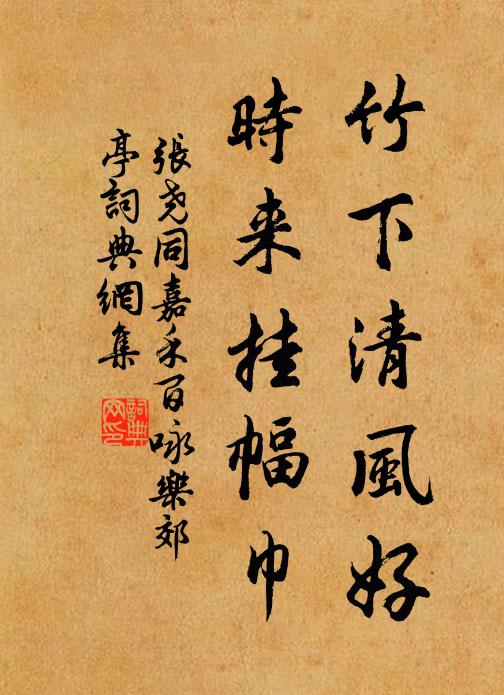 竹下清風好
時来挂幅巾
張尧同嘉禾百咏樂郊
亭詞典網集
詞典
网印